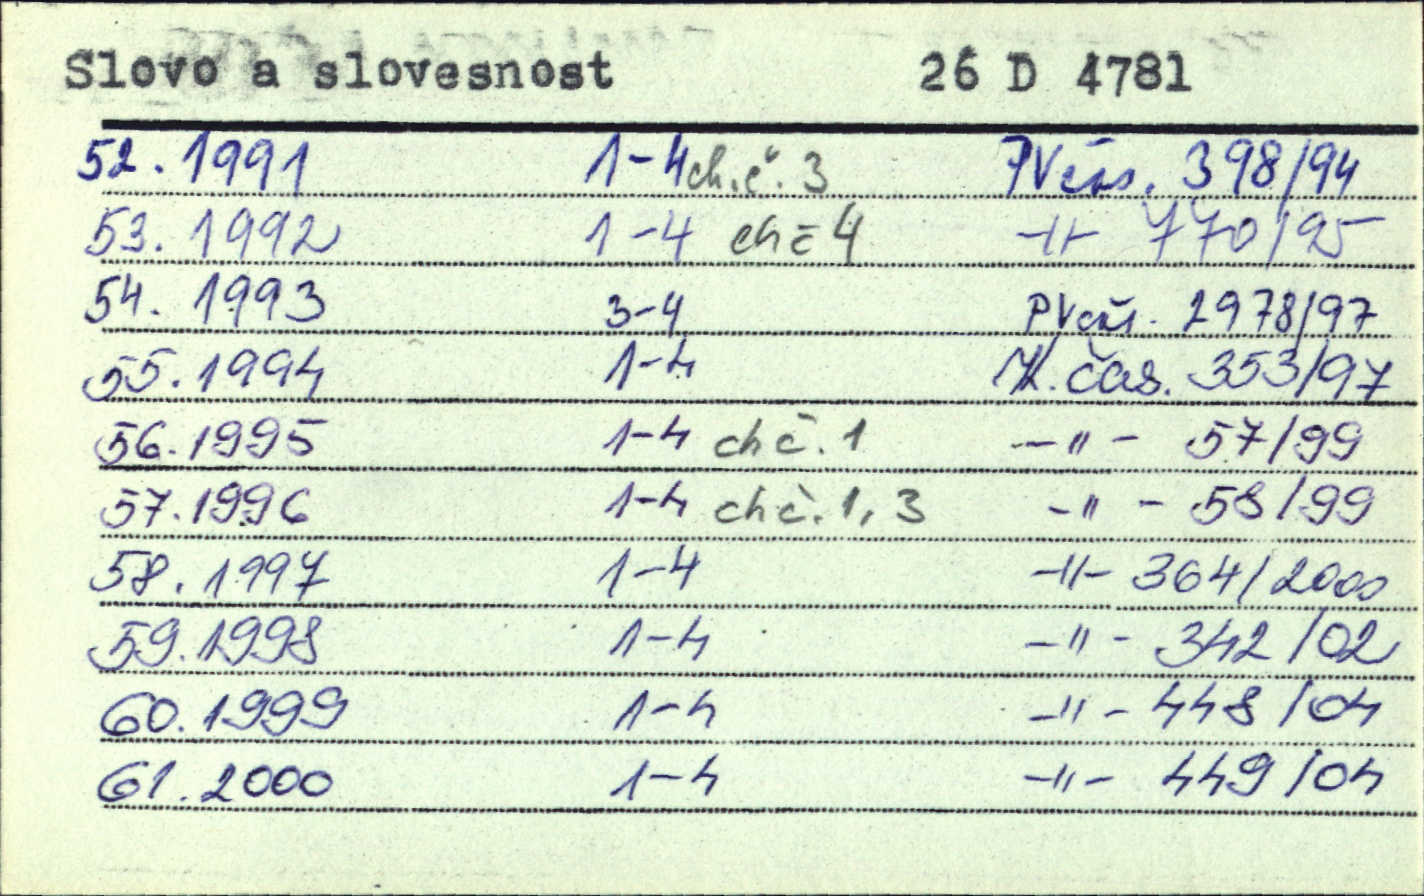 Slovo a slovesnost 26 D 4781
52. 1991 1-4 ch.č. 3 PVčas. 398/94
53. 1992 1-4 ch č 4 -"- 770/95
54. 1993 3-4 PVčas. 2978/97
55. 1994 1-4 čas. 353/97
56. 1995 1-4 ch č. 1 -"- 57/99
57. 1996 1-4 ch č. 1, 3 -"- 58/99
58. 1997 1-4 -"- 364/2000
59. 1998 1-4 -"- 342/02
60. 1999 1-4 -"- 448/04
61. 2000 1-4 -"- 449/04